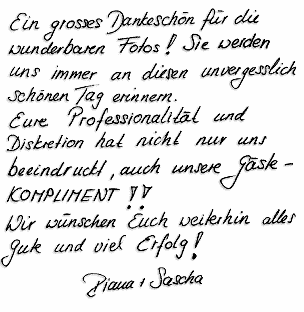 Ein grosses Dankeschön für die
wunderbaren Fotos! Sie werden
uns immer an diesen unvergesslich
schönen Tag erinnern.
Eure Professionalität und
Diskretion hat nicht nur uns
beeindruckt, auch unsere Gäste -
KOMPLIMENT !!
Wir wünschen Euch weiterhin alles
gute und viel Erfolg!
Diana + Sascha